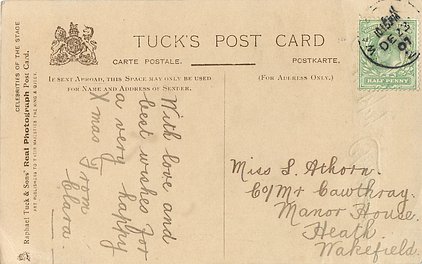 TUCK'S POST CARD
CARTE POSTALE.
POSTKARTE.
IF SENT ABROAD, THIS SPACE MAY ONLY BE USED
FOR NAME AND ADDRESS OF SENDER.
(FOR ADDRESS ONLY.)
With love and
best wishes for
a very happy
Xmas from
Clara.
Miss S. Athorn.
C/o Mr Cawthray.
Manor House.
Heath.
Wakefield.
HALF PENNY
CELEBRITIES OF THE STAGE
Raphael Tuck & Sons' Real Photograph Post Card.
ART PUBLISHERS TO THEIR MAJESTIES THE KING & QUEEN.